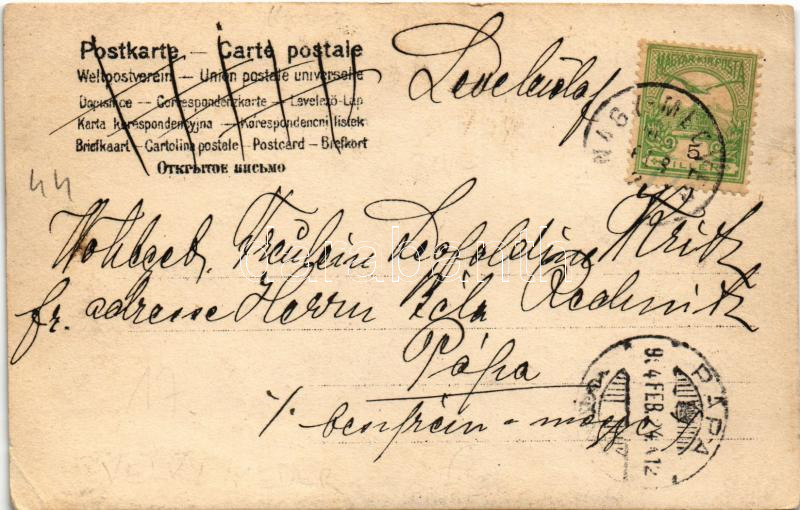 Postkarte – Carte postale
Weltpostverein – Union postale universelle
Dopisnice – Correspondenzkarte – Levelező-Lap
Karta korespondencyjna – Korespondenční lístek
Briefkaart – Cartolina postale – Postcard – Brefkort
Открытое письмо
MAGYAR KIR. POSTA
5
FILLÉR
44
Wohlgeb. Fräulein Leopoldine
fr. adresse Herrn Béla Rechnitz
Pápa
PÁPA
904 FEB. 24
17
darabanth